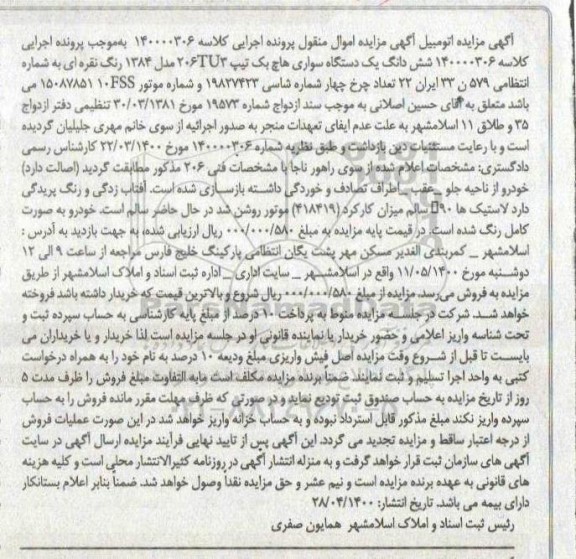 آگهی مزایده اتومبیل آگهی مزایده اموال منقول پرونده اجرایی کلاسه ۱۴۰۰۰۰۳۰۶ بموجب پرونده اجرایی
کلاسه ۱۴۰۰۰۰۳۰۶ شش دانگ یک دستگاه سواری هاچ بک تیپ ۲۰۶TU۳ مدل ۱۳۸۴ رنگ نقره ای به شماره
انتظامی ۵۷۹ ن ۳۳ ایران ۲۲ تعداد چرخ چهار شماره شاسی ۱۹۸۳۷۴۲۳ و شماره موتور ۱۰FSS ۱۵۰۸۷۸۵۱ می
باشد متعلق به آقای حسین اصلانی به موجب سند ازدواج شماره ۱۹۵۷۳ مورخ ۳۰/۰۳/۱۳۸۱ تنظیمی دفتر ازدواج
۳۵ و طلاق ۱۱ اسلامشهر به علت عدم ایفای تعهدات منجر به صدور اجرائیه از سوی خانم مهری جلیلیان گردیده
است و با رعایت مستثنیات دین بازداشت و طبق نظریه شماره ۱۴۰۰۰۰۳۰۶ مورخ ۲۲/۰۳/۱۴۰۰ کارشناس رسمی
دادگستری: مشخصات اعلام شده از سوی راهور ناجا با مشخصات فنی ۲۰۶ مذکور مطابقت گردید (اصالت دارد)
خودرو از ناحیه جلو _ عقب _ اطراف تصادف و خوردگی داشته بازسازی شده است. آفتاب زدگی و رنگ پریدگی
دارد لاستیک ها ۹۰ سالم میزان کارکرد (۴۱۸۴۱۹) موتور روشن شد در حال حاضر سالم است. خودرو به صورت
کامل رنگ شده است. در قیمت پایه مزایده به مبلغ ۰۰۰/۰۰۰/۵۸۰ ریال ارزیابی شده، به جهت بازدید به آدرس :
اسلامشهر _ کمربندی الغدیر مسکن مهر پشت یگان انتظامی پارکینگ خلیج فارس مراجعه از ساعت ۹ الی ۱۲
دوشنبه مورخ ۱۱/۰۵/۱۴۰۰ واقع در اسلامشهر _ سایت اداری _ اداره ثبت اسناد و املاک اسلامشهر از طریق
مزایده به فروش می‌رسد. مزایده از مبلغ ۰۰۰/۰۰۰/۵۸۰ ریال شروع و بالاترین قیمت که خریدار داشته باشد فروخته
خواهد شد. شرکت در جلسه مزایده منوط به پرداخت ۱۰ درصد از مبلغ پایه کارشناسی به حساب سپرده ثبت و
تحت شناسه واریز اعلامی و حضور خریدار یا نماینده قانونی او در جلسه مزایده است لذا خریدار و یا خریداران می
بایست تا قبل از شروع وقت مزایده اصل فیش واریزی مبلغ ودیعه ۱۰ درصد به نام خود را به همراه درخواست
کتبی به واحد اجرا تسلیم و ثبت نمایند. ضمنا برنده مزایده مکلف است مابه التفاوت مبلغ فروش را ظرف مدت ۵
روز از تاریخ مزایده به حساب صندوق ثبت تودیع نماید و در صورتی که ظرف مهلت مقرر مانده فروش را به حساب
سپرده واریز نکند مبلغ مذکور قابل استرداد نبوده و به حساب خزانه واریز خواهد شد در این صورت عملیات فروش
از درجه اعتبار ساقط و مزایده تجدید می گردد. این آگهی پس از تایید نهایی فرآیند مزایده ارسال آگهی در سایت
آگهی های سازمان ثبت قرار خواهد گرفت و به منزله انتشار آگهی در روزنامه کثیرالانتشار محلی است و کلیه هزینه
های قانونی به عهده برنده مزایده است و نیم عشر و حق مزایده نقدا وصول خواهد شد. ضمناً بنابر اعلام بستانکار
دارای بیمه می باشد. تاریخ انتشار: ۲۸/۰۴/۱۴۰۰
رئیس ثبت اسناد و املاک اسلامشهر همایون صفری